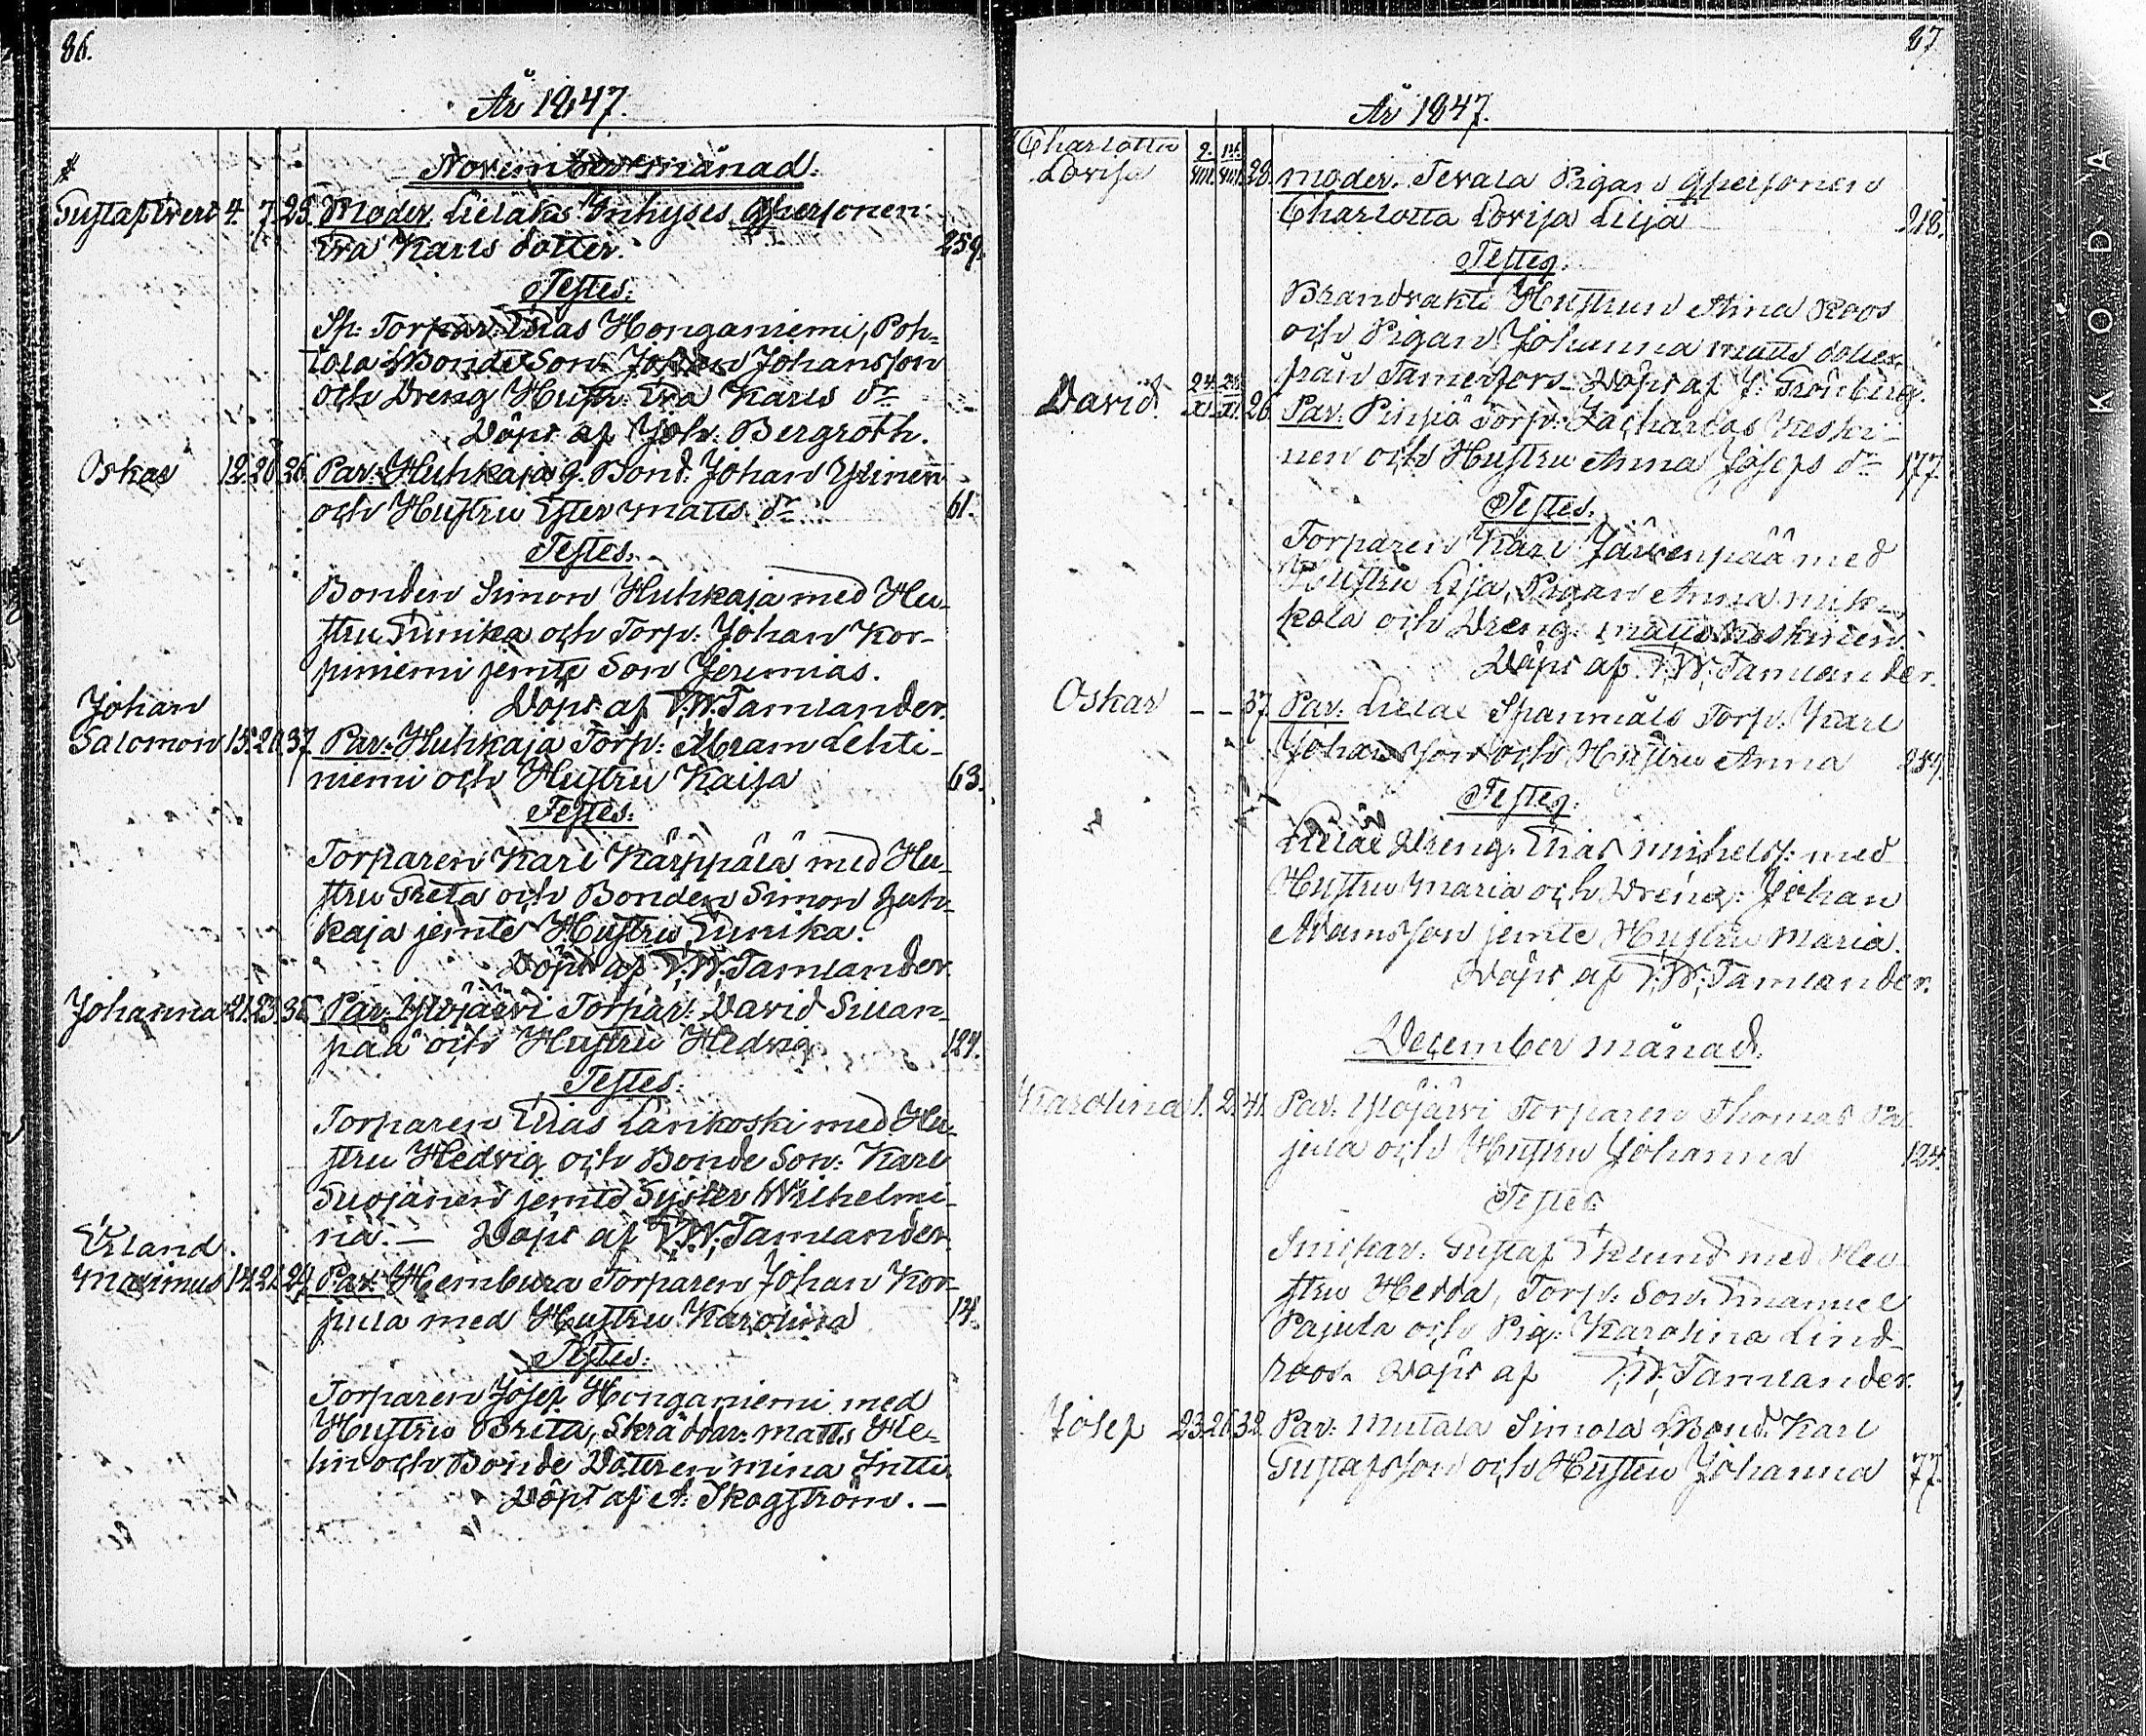 86.
År 1847.
November månad.
Gustaf Evert 4. 7. 25. Moder. Lielaks Inhyses Qpersonen
Eva Karls dotter. 259.
Testes:
Sp: Torpar: Elias Honganiemi, Poh-
tola Bonde Son: Johansson
och Dreng Hustr: Eva Karls dr
Döpt af Joh: Bergroth.
Oskar 12. 20. 26. Par: Huhkaja g. Bond: Johan Yrinen
och Hustru Ester Matts dr 61.
Testes:
Bonden Simon Huhkaja med Hu-
stru Eunika och Torp: Johan Kor-
piniemi jemte Son Jeremias.
Döpt af V:W: Tamlander.
Johan
Salomon 15. 20. 37. Par: Huhkaja Torp: Abram Lehti-
niemi och Hustru Kaisa 63.
Testes:
Torparen Karl Kärppälä med Hu-
stru Greta och Bonden Simon Huh-
kaja jemte Hustru Eunika.
Döpt af V:W: Tamlander
Johanna 21. 23. 35. Par: Ylöjärvi Torpar: David Siuan-
pää och Hustru Hedvig 124.
Testes:
Torparen Elias Lankoski med Hu-
stru Hedvig och Bonde Son: Karl
Suojanen jemte Syster Wilhelmi-
na. — Döpt af V:W: Tamlander
Erland
Maximus 14. 21. 24. Par: Hembura Torparen Johan Kor-
pula med Hustru Karolina 14.
Testes:
Torparen Josep Honganiemi med
Hustru Brita, Skräddar: Matts He-
lin och Bonde Dotteren Mina
Döpt af A: Skogström. —
87
År 1847.
Charlotta
Lovisa 9. VIII. 14. VIII. 28. Moder. Tevala Pigan Qpersonen
Charlotta Lovisa Lilja 218.
Testes:
Brandvakts Hustrun Anna Roos
och Pigan Johanna Matts dotter
från Tamerfors. Döpt af J: Grönberg.
David. 24. XI. XI. 26. Par: Pinsiö Torp: Zacharias Keski-
nen och Hustru Anna Joseps dr 177.
Testes:
Torparen Karl Järvenpää med
Hustru Lisa, Pigan Anna Mik-
kola och Dreng: Matts Koskinen.
Döpt af V:W: Tamlander.
Oskar – – 37. Par: Lielax Spannmåls Torp: Karl
Johansson och Hustru Anna 259.
Testes:
Lielax Dreng: Elias Michelss: med
Hustru Maria och Dreng: Johan
Adamsson jemte Hustru Maria.
Döpt af V:W: Tamlander.
December månad.
Karolina 1. 2. 41. Par: Ylöjärvi Torparen Thomas Pa-
jula och Hustru Johanna 124.
Testes
Snickar: Gustaf Eklund med Hu-
stru Hedda, Torp: Son: Emanuel
Pajula och Pig: Karolina Lind-
roos. Döpt af V:W: Tamlander.
Josep 23. 26. 32. Par: Mutala Simola Bond: Karl
Gustafsson och Hustru Johanna 77.
KODA